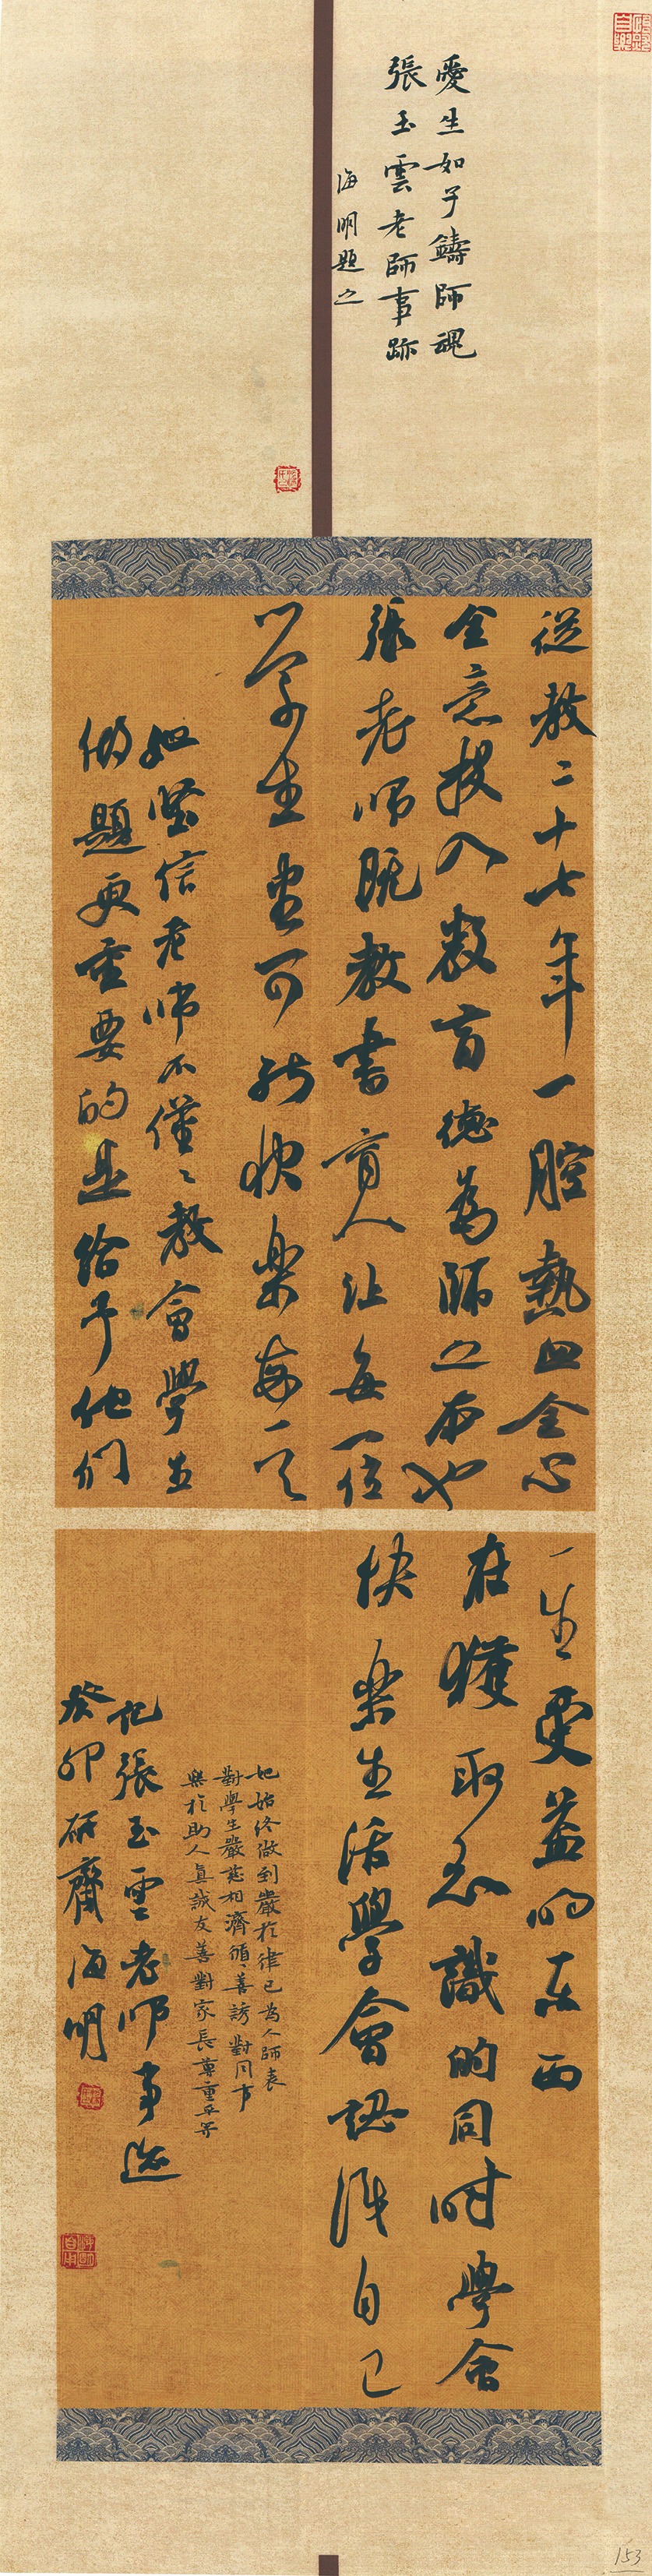 愛生如子鑄師魂
張玉雲老師事跡
海明題之
從教二十七年一腔熱血全心
全意投入教育德為師之本也
張老師既教書育人让每一位
学生都可能快樂每一天
她堅信老师不僅〻教會學生
做題更重要的是给予他们
一生受益的东西
在獲取知識的同时學會
快樂生活學會認识自己
她始终做到嚴於律己為人師表
對學生嚴慈相濟循〻善誘對同事
樂於助人真誠友善對家長尊重平等
记張玉雲老师事迹
癸卯研齋海明
153